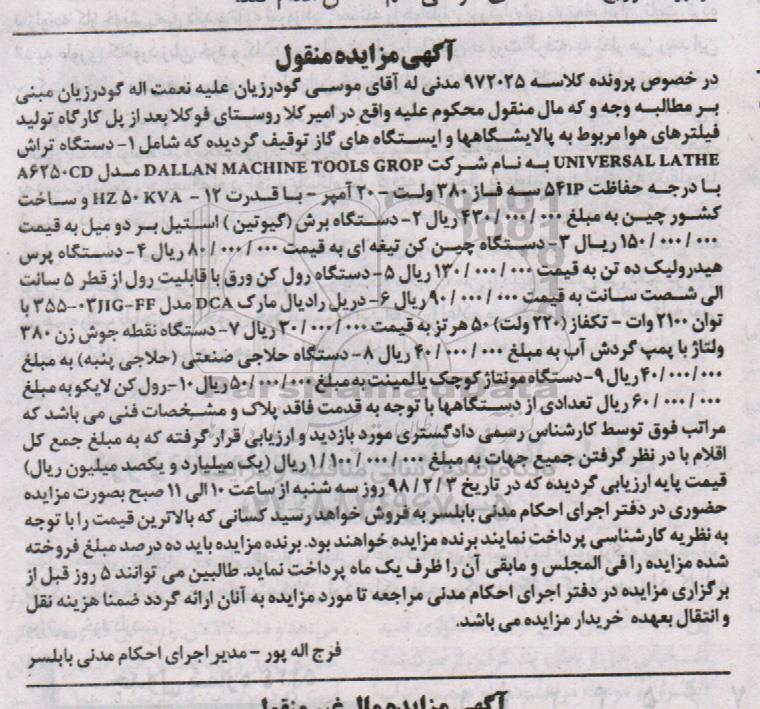 آگهی مزایده منقول
در خصوص پرونده کلاسه ۹۷۲۰۲۵ مدنی له آقای موسی گودرزیان علیه نعمت اله گودرزیان مبنی
بر مطالبه وجه و که مال منقول محکوم علیه واقع در امیر کلا روستای فوکلا بعد از پل کارگاه تولید
فیلترهای هوا مربوط به پالایشگاهها و ایستگاه های گاز توقیف گردیده که شامل ۱- دستگاه تراش
UNIVERSAL LATHE به نام شرکت DALLAN MACHINE TOOLS GROP مدل A۶۲۵۰CD
با درجه حفاظت ۵۴IP سه فاز ۳۸۰ ولت - ۲۰ آمپر - با قدرت ۱۲ - HZ ۵۰ KVA و ساخت
کشور چین به مبلغ ۴۳۰/۰۰۰/۰۰۰ ریال ۲- دستگاه برش (گیوتین) استیل بر دو میل به قیمت
۱۵۰/۰۰۰/۰۰۰ ریال ۳- دستگاه چین کن تیغه ای به قیمت ۸۰/۰۰۰/۰۰۰ ریال ۴- دستگاه پرس
هیدرولیک ده تن به قیمت ۱۳۰/۰۰۰/۰۰۰ ریال ۵- دستگاه رول کن ورق با قابلیت رول از قطر ۵ سانت
الی شصت سانت به قیمت ۹۰/۰۰۰/۰۰۰ ریال ۶- دریل رادیال مارک DCA مدل ۳۵۵-۰۳JIG-FF با
توان ۲۱۰۰ وات - تکفاز (۲۲۰ ولت) ۵۰ هرتز به قیمت ۲۰/۰۰۰/۰۰۰ ریال ۷- دستگاه نقطه جوش زن ۳۸۰
ولتاژ با پمپ گردش آب به مبلغ ۴۰/۰۰۰/۰۰۰ ریال ۸- دستگاه حلاجی صنعتی (حلاجی پنبه) به مبلغ
۴۰/۰۰۰/۰۰۰ ریال ۹- دستگاه مونتاژ کوچک بالمینت به مبلغ ۵۰/۰۰۰/۰۰۰ ریال ۱۰- رول کن لایکو به مبلغ
۶۰/۰۰۰/۰۰۰ ریال تعدادی از دستگاهها با توجه به قدمت فاقد پلاک و مشخصات فنی می باشد که
مراتب فوق توسط کارشناس رسمی دادگستری مورد بازدید و ارزیابی قرار گرفته که به مبلغ جمع کل
اقلام با در نظر گرفتن جمیع جهات به مبلغ ۱/۱۰۰/۰۰۰/۰۰۰ ریال (یک میلیارد و یکصد میلیون ریال)
قیمت پایه ارزیابی گردیده که در تاریخ ۹۸/۲/۳ روز سه شنبه از ساعت ۱۰ الی ۱۱ صبح بصورت مزایده
حضوری در دفتر اجرای احکام مدنی بابلسر به فروش خواهد رسید کسانی که بالاترین قیمت را با توجه
به نظریه کارشناسی پرداخت نمایند برنده مزایده خواهند بود. برنده مزایده باید ده درصد مبلغ فروخته
شده مزایده را فی المجلس و مابقی آن را ظرف یک ماه پرداخت نماید. طالبین می توانند ۵ روز قبل از
برگزاری مزایده در دفتر اجرای احکام مدنی مراجعه تا مورد مزایده به آنان ارائه گردد ضمنا هزینه نقل
و انتقال بعهده خریدار مزایده می باشد.
فرج اله پور - مدیر اجرای احکام مدنی بابلسر
آگهی مزایده مال غیر منقول